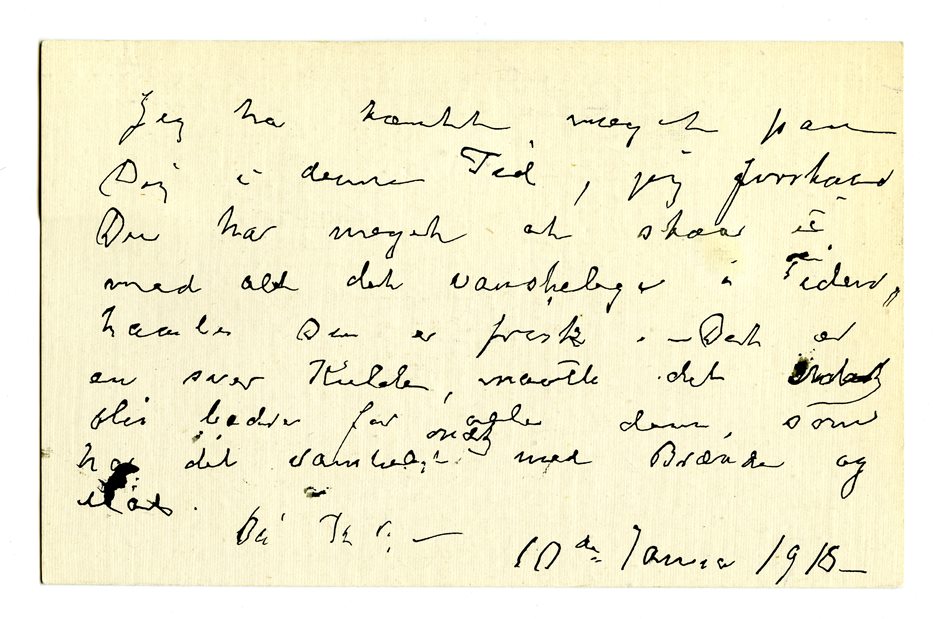 Jeg ha tænkt meget paa
Dig i denne Tid, jeg forstaar
Du har meget at staa i
med alt det vanskelige i Tiden,
haaber Du er frisk. – Det er
en svær Kulde, maatte det
bli bedre for alle dem, som
har det vanskelig med Brænde og
10de Januar 1918